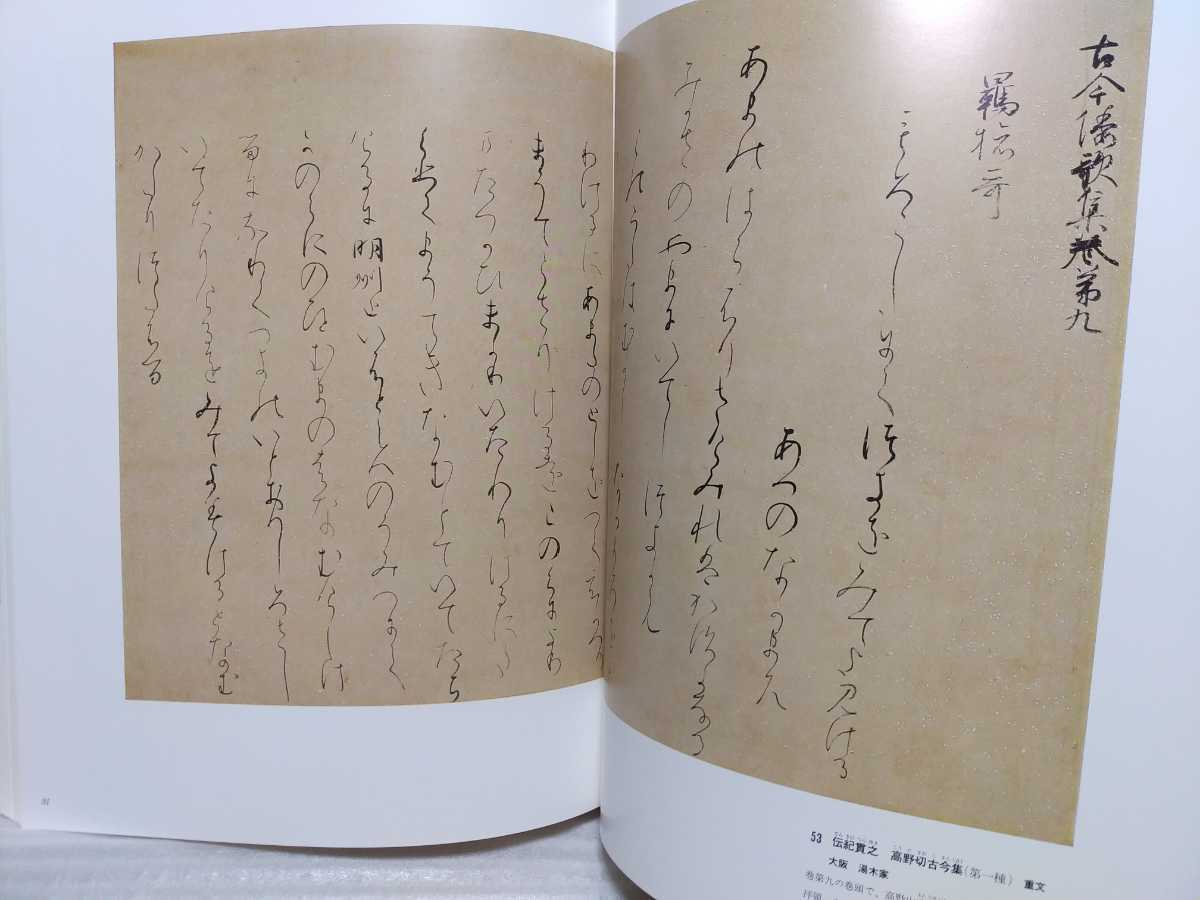 古今倭歌集巻第九
羇旅哥
もろこしにてつきをみてよみける
あへのなかまろ
あまのはらふりさけみれはかすかなる
みかさのやまにいてしつきかも
このうたはむかし
けるにあまたのとしをへて
まうてこさりけるをこのくにより
またつかひまかりいたりけるにた
くひてまうてきなむとていてたち
けるに明州といふところのうみつらにて
かのくにのひとむまのはなむけしけ
つきのいとおもしろくさし
いてたりけるをみてよめるとなむ
かたりつたふる
53 伝紀貫之 高野切古今集(第一種) 重文
大阪 湯木家
巻第九の巻頭で、高野山